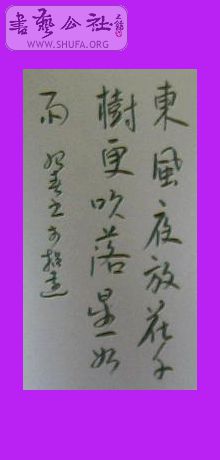 書藝公社
WWW.SHUFA.ORG
東風夜放花千
樹更吹落星如
雨